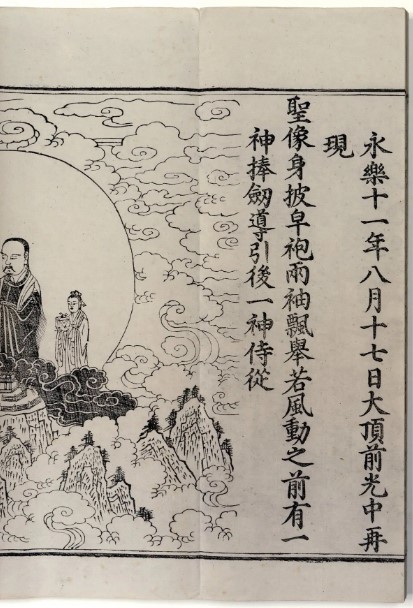 永樂十一年八月十七日大頂前光中再
現
聖像身披皁袍兩袖飄舉若風動之前有一
神捧劔導引後一神侍從